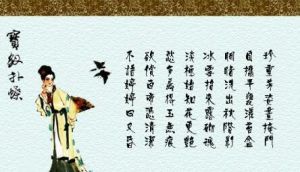 珍重芳姿晝掩門
自攜手甕灌苔盆
胭脂洗出秋階影
冰雪招來露砌魂
淡極始知花更艷
愁多焉得玉無痕
欲償白帝憑清潔
不語婷婷日又昏
寶釵扑蝶